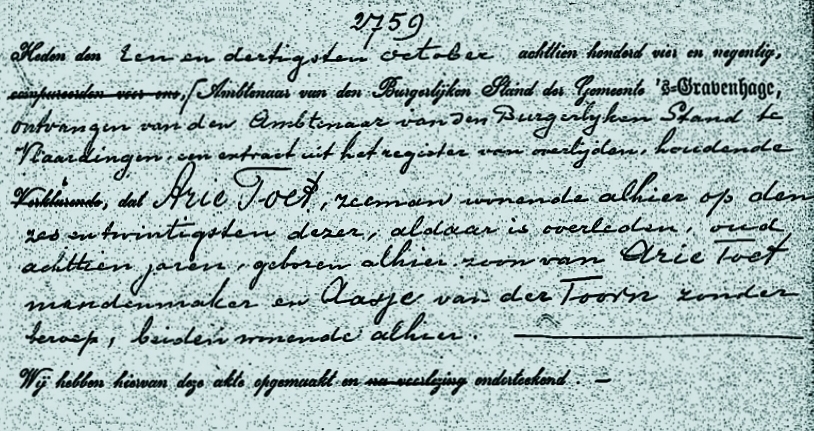 2759
Heden den een en dertigsten october achttien honderd vier en negentig,
compareerden voor ons, Ambtenaar van den Burgerlijken Stand der Gemeente 's-Gravenhage,
ontvangen van den Ambtenaar van den Burgerlijken Stand te
Vlaardingen, een extract uit het register van overlijden, houdende
Verklarende, dat Arie Toet, zeeman wonende alhier op den
zes en twintigsten dezer, aldaar is overleden, oud
achttien jaren, geboren alhier zoon van Arie Toet
mandenmaker en Aagje van der Toorn zonder
beroep, beiden wonende alhier.
Wij hebben hiervan deze akte opgemaakt en na voorlezing onderteekend. —